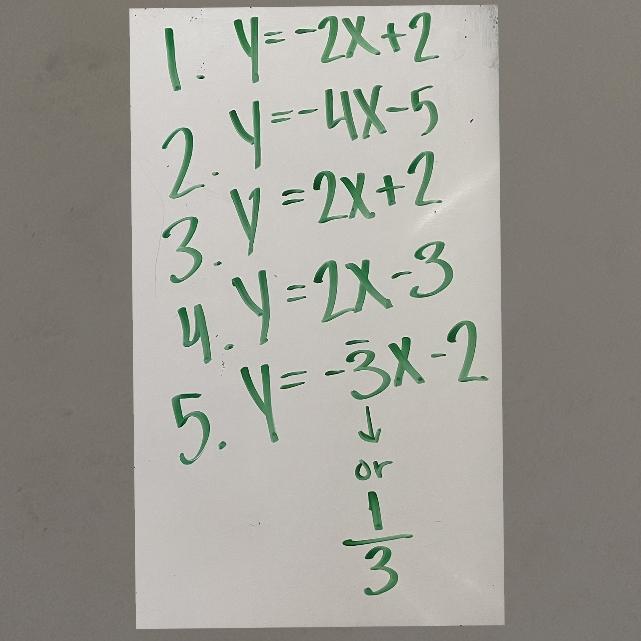 1. y=-2x+2
2. y=-4x-5
3. y=2x+2
4. y=2x-3
5. y=-3̅x-2
↓
or
1
3